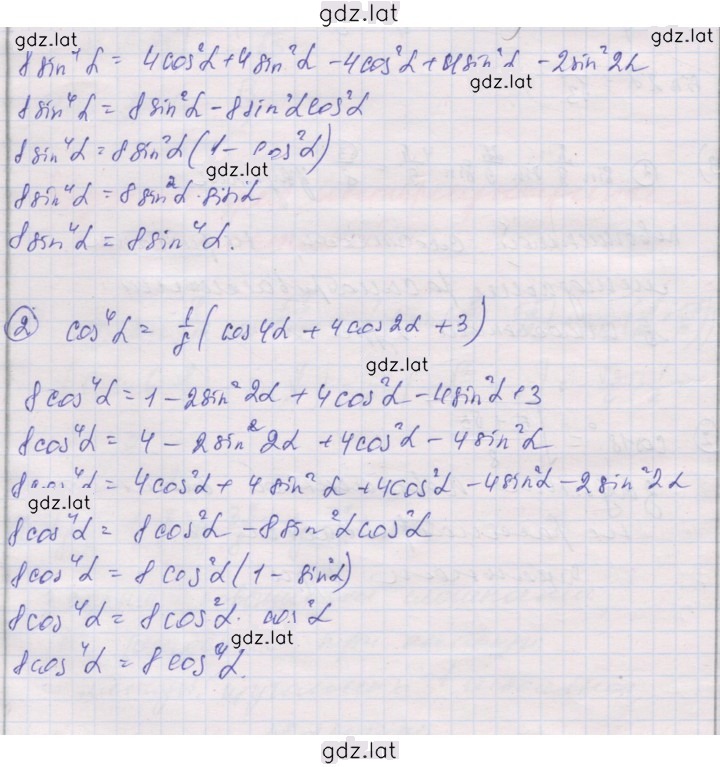 gdz.lat
gdz.lat gdz.lat
8sin⁴α = 4cos²α + 4sin²α - 4cos²α + 4sin²α - 2sin²2α
gdz.lat
8sin⁴α = 8sin²α - 8sin²αcos²α
8sin⁴α = 8sin²α(1 - cos²α)
gdz.lat
8sin⁴α = 8sin²α · sin²α
8sin⁴α = 8sin⁴α.
② cos⁴α = 1/8(cos4α + 4cos2α + 3)
gdz.lat
8cos⁴α = 1 - 2sin²2α + 4cos²α - 4sin²α + 3
8cos⁴α = 4 - 2sin²2α + 4cos²α - 4sin²α
8cos⁴α = 4cos²α + 4sin²α + 4cos²α - 4sin²α - 2sin²2α
gdz.lat
8cos⁴α = 8cos²α - 8sin²αcos²α
8cos⁴α = 8cos²α(1 - sin²α)
8cos⁴α = 8cos²α · cos²α
gdz.lat
8cos⁴α = 8cos⁴α.
gdz.lat